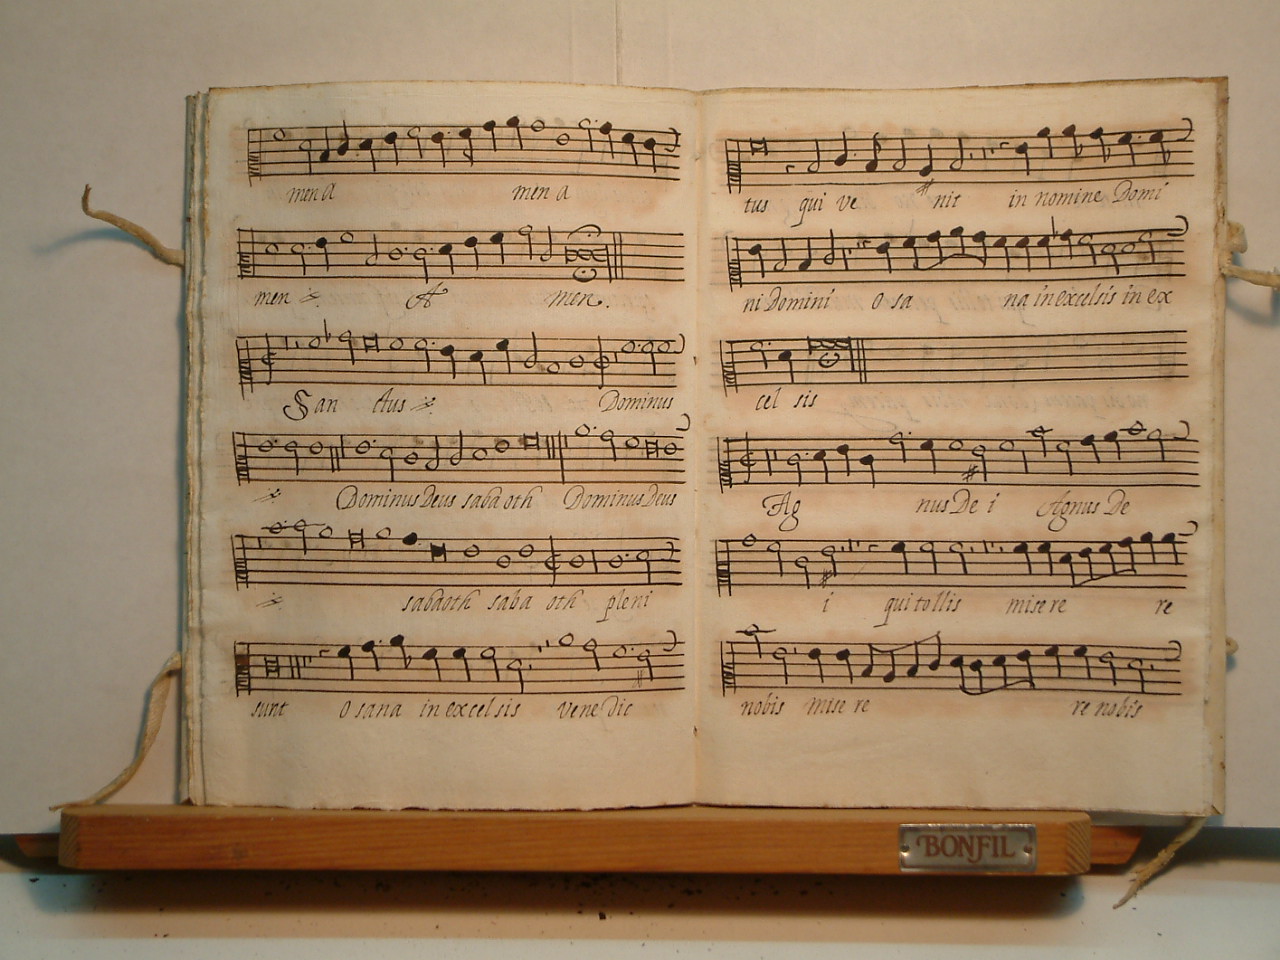 men A men A
men A men.
San ctus Dominus
Dominus Deus sabaoth Dominus Deus
sabaoth saba oth pleni
sunt Osana in excelsis venedic
tus qui ve nit in nomine Domi
ni Domini Osa na in excelsis in ex
cel sis
Ag nus De i Agnus De
i qui tollis misere re
nobis mise re re nobis
BONFIL